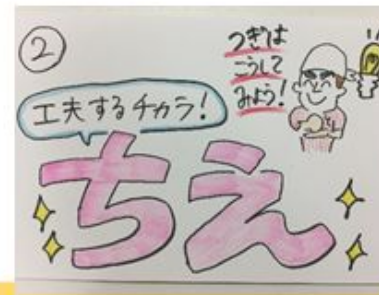 ②
つぎは
こうして
みよう!
工夫するチカラ!
ちえ